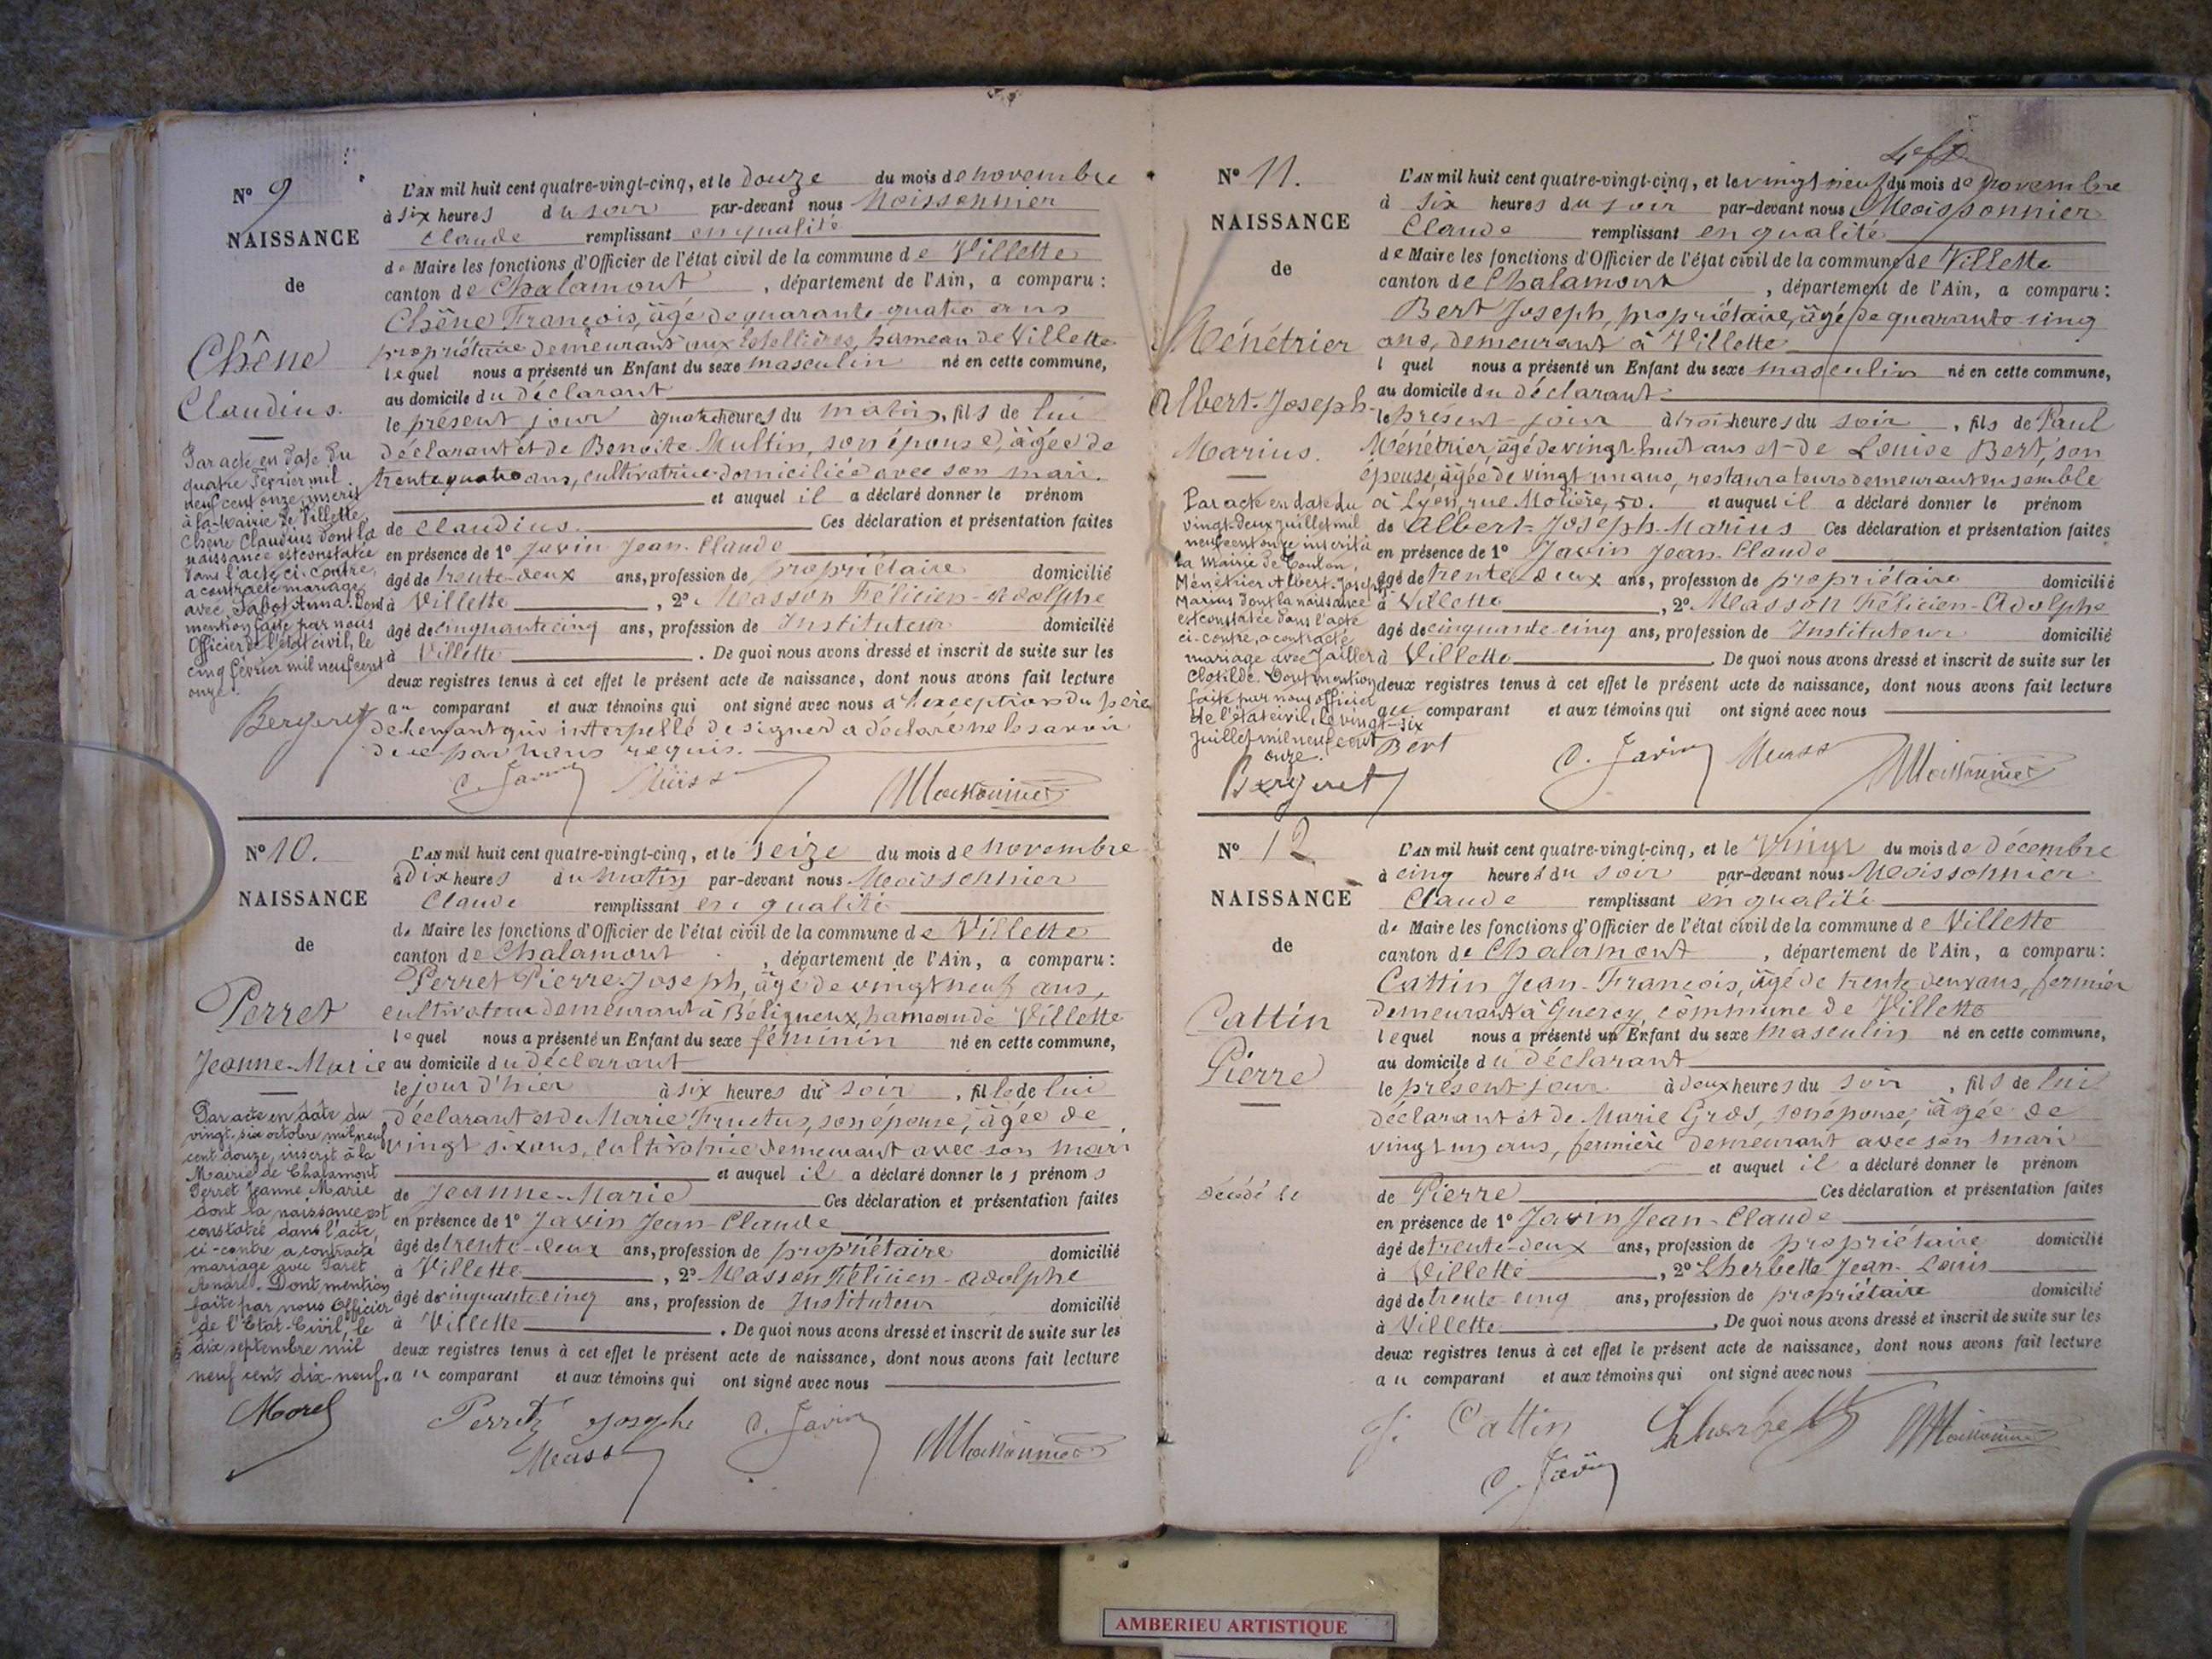 N° 9
NAISSANCE
de
Chêne
Claudius.
Par acte en date du
quatre Février mil
neuf cent onze, inscrit
à la Mairie de Villette,
Chêne Claudius dont la
naissance est constatée
dans l'acte ci-contre,
a contracté mariage
avec Anna. Dont
mention faite par nous
Officier de l'état civil, le
cinq février mil neuf cent
onze.
Bergeret
L'AN mil huit cent quatre-vingt-cinq, et le douze du mois de novembre
à six heures du soir par-devant nous Moissonnier
Claude remplissant en qualité
de Maire les fonctions d'Officier de l'état civil de la commune de Villette
canton de Chalamont, département de l'Ain, a comparu :
Chêne François, âgé de quarante-quatre ans
propriétaire demeurant aux hameau de Villette
lequel nous a présenté un Enfant du sexe masculin né en cette commune,
au domicile du déclarant
le présent jour à quatre heures du matin, fils de lui
déclarant et de Benoîte Multin, son épouse, âgée de
trente quatre ans, cultivatrice domiciliée avec son mari.
et auquel il a déclaré donner le prénom
de Claudius. Ces déclaration et présentation faites
en présence de 1° Javin Jean-Claude
âgé de trente-deux ans, profession de propriétaire domicilié
à Villette, 2° Masson Félicien-Adolphe
âgé de cinquante cinq ans, profession de Instituteur domicilié
à Villette. De quoi nous avons dressé et inscrit de suite sur les
deux registres tenus à cet effet le présent acte de naissance, dont nous avons fait lecture
au comparant et aux témoins qui ont signé avec nous à l'exception du père
de l'enfant qui interpellé de signer a déclaré ne le savoir
de ce par nous requis.
C. Javin Masson Moissonnier
N° 10.
NAISSANCE
de
Perret
Jeanne-Marie
Par acte en date du
vingt-six octobre mil neuf
cent douze, inscrit à la
Mairie de Chalamont
Perret Jeanne Marie
dont la naissance est
constatée dans l'acte,
ci-contre a contracté
mariage avec Paret
André. Dont mention
faite par nous Officier
de l'Etat-Civil, le
dix septembre mil
neuf cent dix-neuf.
Morel
L'AN mil huit cent quatre-vingt-cinq, et le seize du mois de novembre
à dix heures du matin par-devant nous Moissonnier
Claude remplissant en qualité
de Maire les fonctions d'Officier de l'état civil de la commune de Villette
canton de Chalamont, département de l'Ain, a comparu :
Perret Pierre-Joseph, âgé de vingt neuf ans,
cultivateur demeurant à Béligneux, hameau de Villette
lequel nous a présenté un Enfant du sexe féminin né en cette commune,
au domicile du déclarant
le jour d'hier à six heures du soir, fille de lui
déclarant et de Marie Fructus, son épouse, âgée de
vingt six ans, cultivatrice demeurant avec son mari
et auquel il a déclaré donner les prénoms
de Jeanne-Marie Ces déclaration et présentation faites
en présence de 1° Javin Jean-Claude
âgé de trente-deux ans, profession de propriétaire domicilié
à Villette, 2° Masson Félicien-Adolphe
âgé de cinquante cinq ans, profession de Instituteur domicilié
à Villette. De quoi nous avons dressé et inscrit de suite sur les
deux registres tenus à cet effet le présent acte de naissance, dont nous avons fait lecture
au comparant et aux témoins qui ont signé avec nous
Perret Joseph C. Javin Moissonnier
Masson
N° 11.
NAISSANCE
de
Ménétrier
Albert-Joseph-
Marius.
Par acte en date du
vingt-deux juillet mil
neuf cent onze inscrit à
la Mairie de Toulon,
Ménétrier Albert-Joseph
Marius dont la naissance
est constatée dans l'acte
ci-contre, a contracté
mariage avec Jaillet
Clotilde. Dont mention
faite par nous officier
de l'état civil, le vingt-six
Juillet mil neuf cent
onze.
Bergeret
L'AN mil huit cent quatre-vingt-cinq, et le vingt neuf du mois de novembre
à six heures du soir par-devant nous Moissonnier
Claude remplissant en qualité
de Maire les fonctions d'Officier de l'état civil de la commune de Villette
canton de Chalamont, département de l'Ain, a comparu :
Bert Joseph, propriétaire, âgé de quarante cinq
ans, demeurant à Villette
l quel nous a présenté un Enfant du sexe masculin né en cette commune,
au domicile du déclarant
le présent jour à trois heures du soir, fils de Paul
Ménétrier, âgé de vingt-huit ans et de Louise Bert, son
épouse, âgée de vingt un ans, restaurateurs demeurant ensemble
à Lyon, rue Molière, 50. et auquel il a déclaré donner le prénom
de Albert-Joseph-Marius Ces déclaration et présentation faites
en présence de 1° Javin Jean-Claude
âgé de trente-deux ans, profession de propriétaire domicilié
à Villette, 2° Masson Félicien-Adolphe
âgé de cinquante cinq ans, profession de Instituteur domicilié
à Villette. De quoi nous avons dressé et inscrit de suite sur les
deux registres tenus à cet effet le présent acte de naissance, dont nous avons fait lecture
au comparant et aux témoins qui ont signé avec nous
Bert C. Javin Masson Moissonnier
N° 12
NAISSANCE
de
Cattin
Pierre
décédé le
L'AN mil huit cent quatre-vingt-cinq, et le Vingt du mois de décembre
à cinq heures du soir par-devant nous Moissonnier
Claude remplissant en qualité
de Maire les fonctions d'Officier de l'état civil de la commune de Villette
canton de Chalamont, département de l'Ain, a comparu :
Cattin Jean-François, âgé de trente deux ans, fermier
demeurant à Quercy, commune de Villette
lequel nous a présenté un Enfant du sexe masculin né en cette commune,
au domicile du déclarant
le présent jour à deux heures du soir, fils de lui
déclarant et de Marie Gros, son épouse, âgée de
vingt un ans, fermière demeurant avec son mari
et auquel il a déclaré donner le prénom
de Pierre Ces déclaration et présentation faites
en présence de 1° Javin Jean-Claude
âgé de trente-deux ans, profession de propriétaire domicilié
à Villette, 2° Lherbette Jean-Louis
âgé de trente cinq ans, profession de propriétaire domicilié
à Villette. De quoi nous avons dressé et inscrit de suite sur les
deux registres tenus à cet effet le présent acte de naissance, dont nous avons fait lecture
au comparant et aux témoins qui ont signé avec nous
J. Cattin Lherbette Moissonnier
C. Javin
AMBERIEU ARTISTIQUE